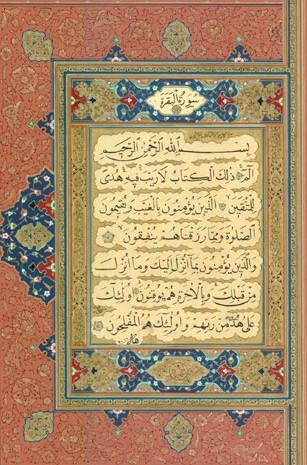 سورة البقرة
بسم الله الرحمن الرحيم
الم ذلك الكتاب لا ريب فيه هدى
للمتقين الذين يؤمنون بالغيب ويقيمون
الصلوة ومما رزقناهم ينفقون
والذين يؤمنون بما انزل اليك وما انزل
من قبلك وبالاخرة هم يوقنون اولئك
على هدى من ربهم واولئك هم المفلحون